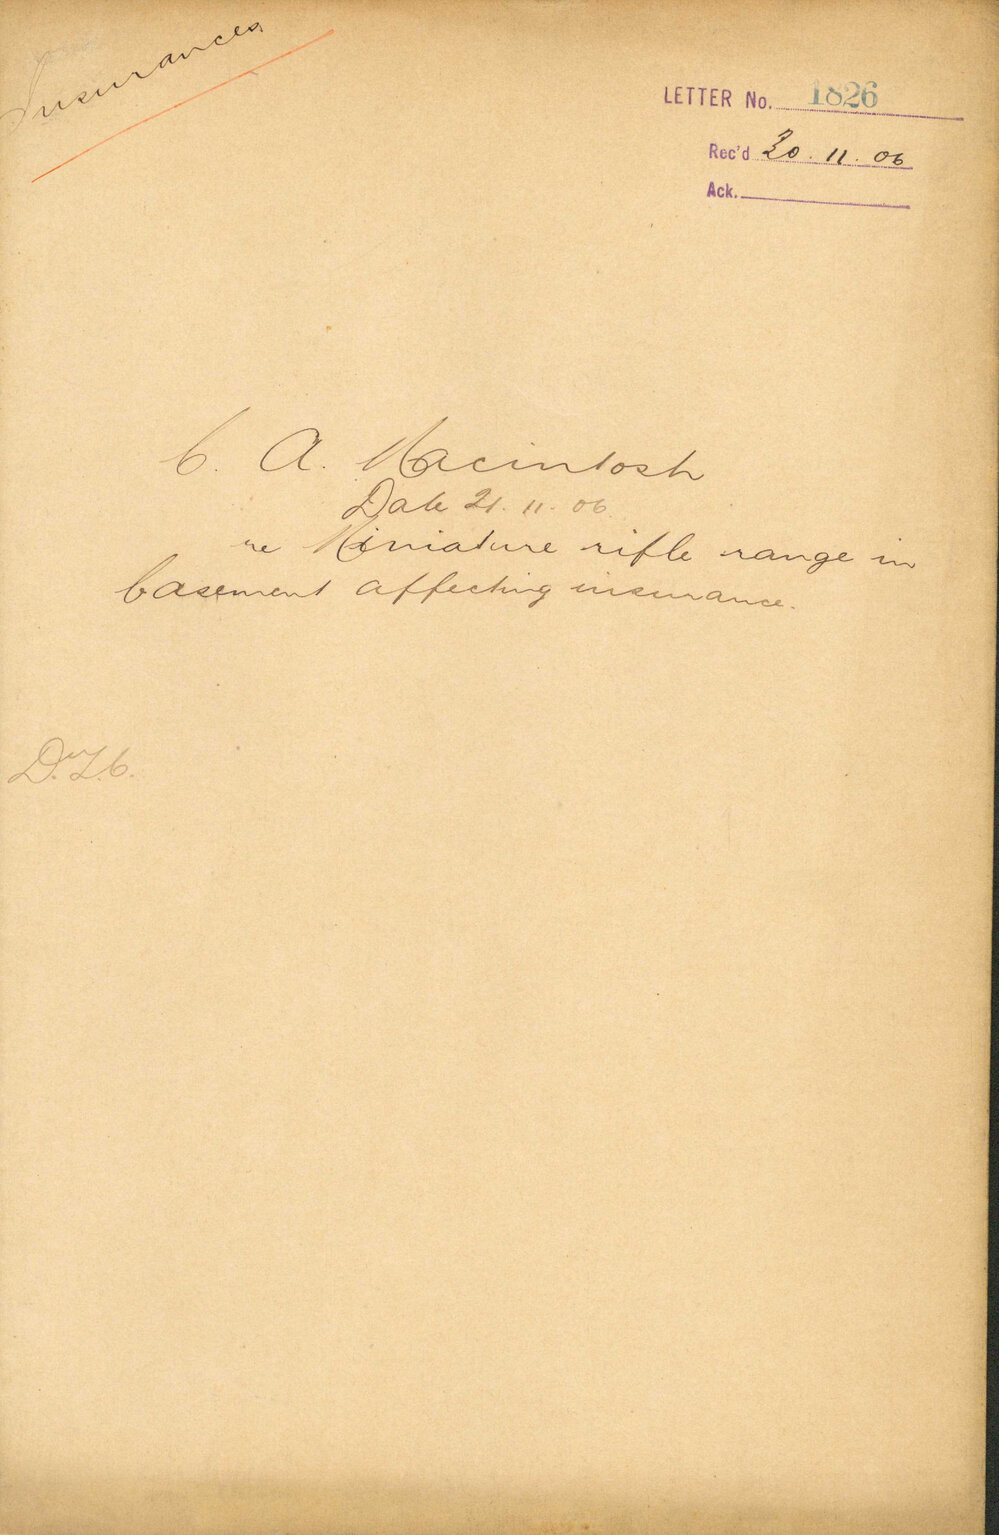 Insurances
LETTER No. 1826
Rec'd 30. 11. 06
Ack.
C. A. Macintosh
Date 21. 11. 06
re Miniature rifle range in
basement affecting insurance.